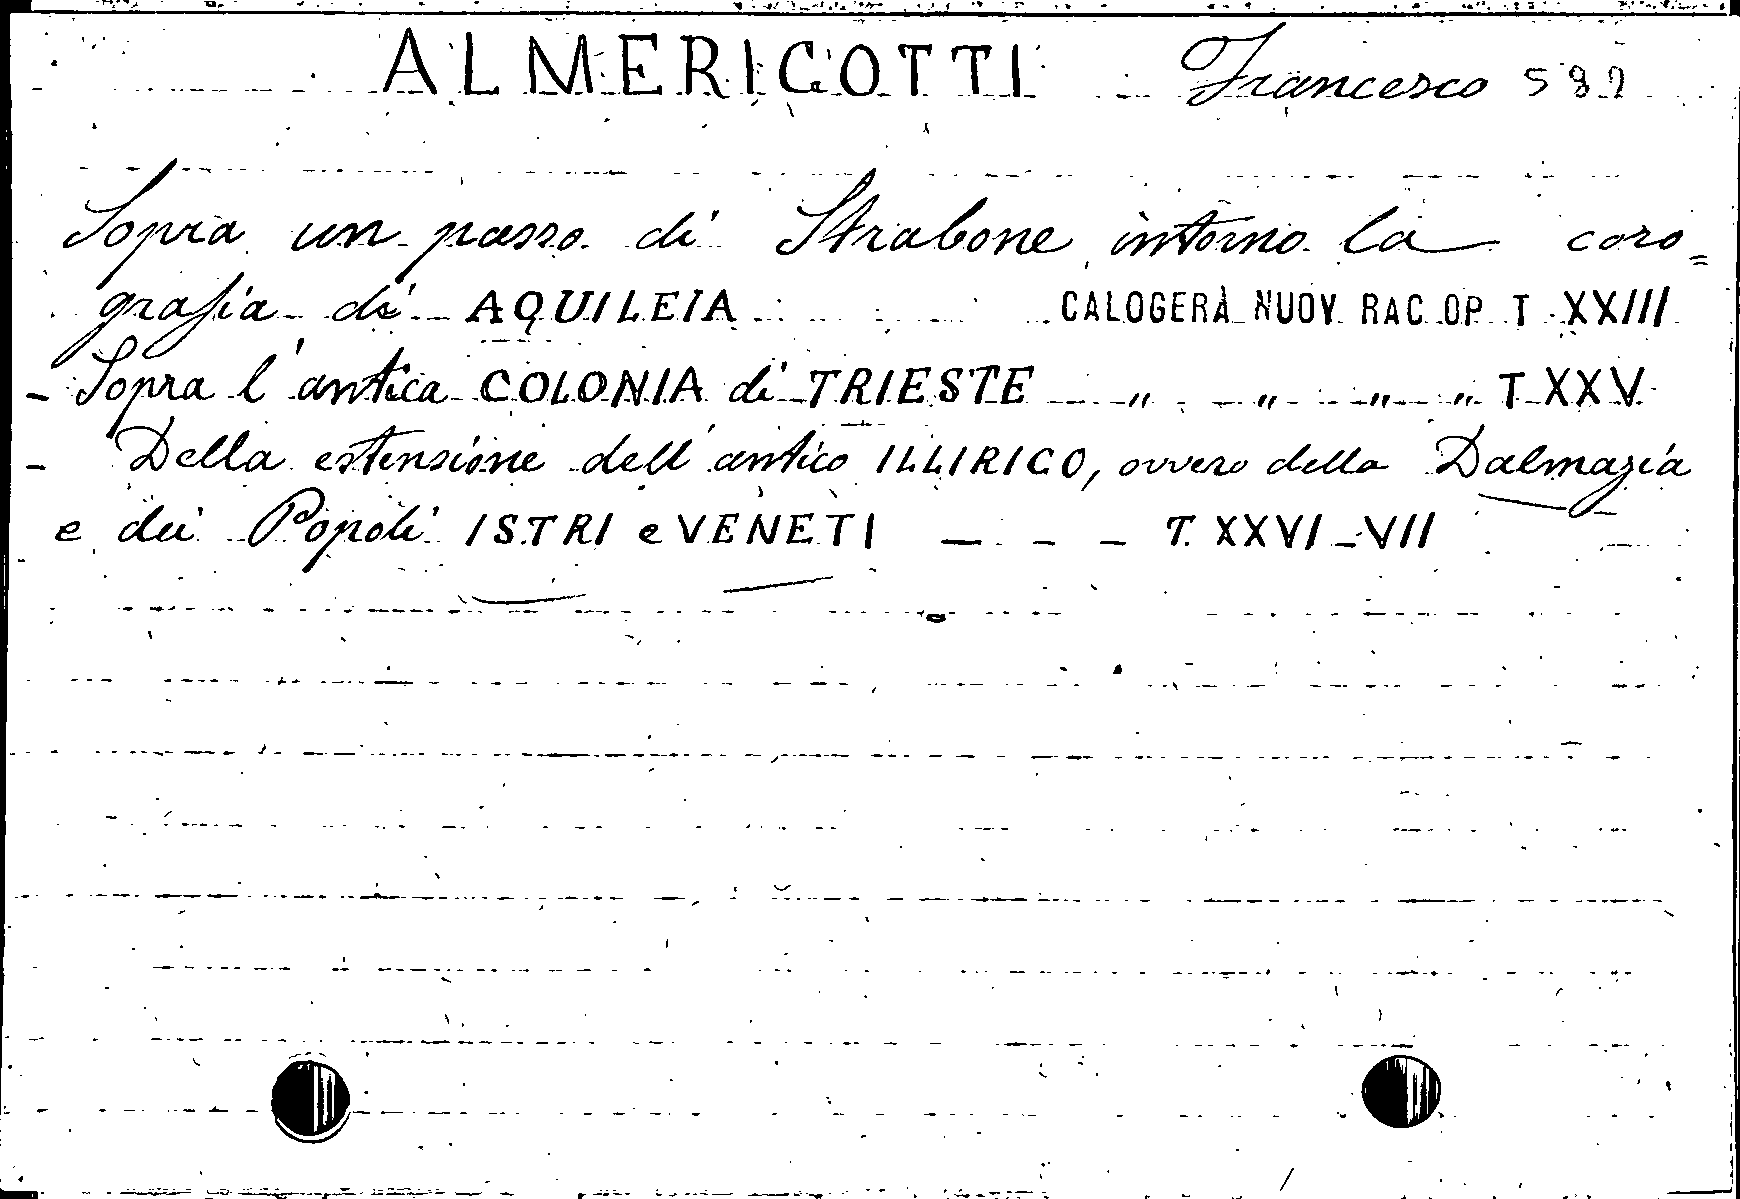 ALMERIGOTTI Francesco 582
Sopra un passo di Strabone intorno la coro=
grafia di AQUILEIA CALOGERÀ NUOV. RAC. OP T XXIII
- Sopra l'antica COLONIA di TRIESTE „ „ „ „ T. XXV
- Della estensione dell'antico ILLIRICO, ovvero della Dalmazia
e dei Popoli ISTRI e VENETI — - - T. XXVI-VII